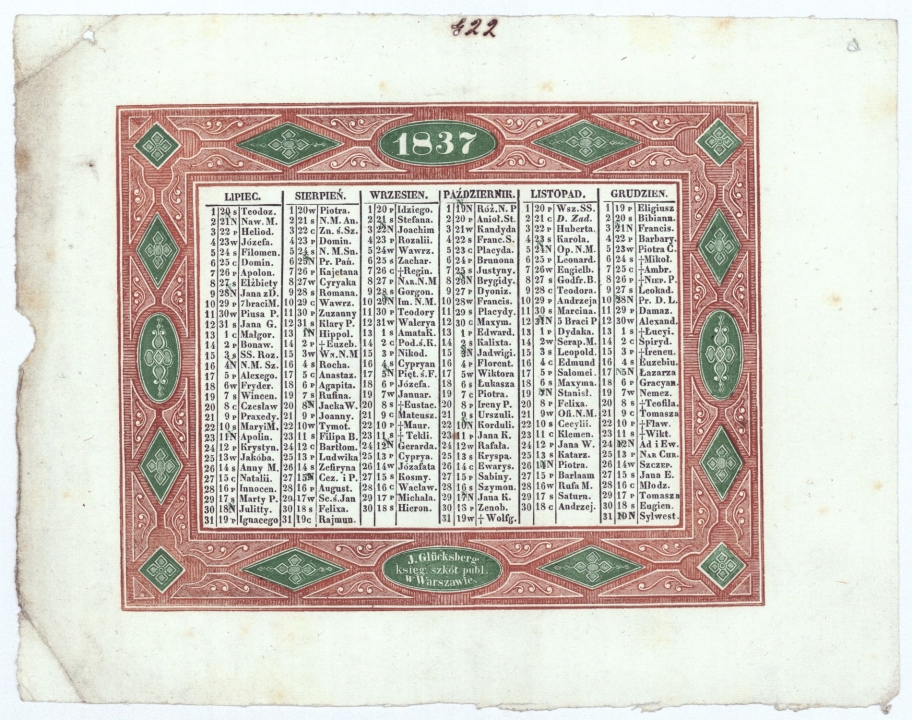 822
1837
LIPIEC.
1 Teodoz.
2 Naw. M.
3 22 p Heliod.
4 23 w Józefa.
5 24 s Filomen.
6 25 c Domin.
7 26 p Apolon.
8 27 s Elżbiety
9 28 N Jana z D.
10 29 p 7braciM.
11 30 w Piusa P.
12 31 s Jana G.
13 1 c Małgor.
14 2 p Bonaw.
15 3 s SS. Roz.
16 4 N N.M. Sz.
17 5 p Alexego.
18 6 w Fryder.
19 7 s Wincen.
20 8 c Czesław
21 9 p Praxedy.
22 10 s MaryiM.
23 11 N Apolin.
24 12 p Krystyn.
25 13 w Jakóba.
26 14 s Anny M.
27 15 c Natalii.
28 16 p Innocen.
29 17 s Marty P.
30 18 N Julitty.
31 19 p Ignacego
SIERPIEŃ.
1 20 w Piotra.
2 21 s N.M. An.
3 22 c Zn. ś.Sz.
4 23 p Domin.
5 24 s N. M.Sn.
6 25 N Pr. Pań.
7 26 p Kajetana
8 27 w Cyryaka
9 28 s Romana.
10 29 c Wawrz.
11 30 p Zuzanny
12 31 s Klary P.
13 1 N Hippol.
14 2 p †Euzeb.
15 3 w Ws.N.M
16 4 s Rocha.
17 5 c Anastaz.
18 6 p Agapita.
19 7 s Rufina.
20 8 N JackaW.
21 9 p Joanny.
22 10 w Tymot.
23 11 s Filipa B.
24 12 c Bartłom.
25 13 p Ludwika
26 14 s Zefiryna
27 15 N Cez. i P.
28 16 p August.
29 17 w Sc.ś.Jan
30 18 s Felixa.
31 19 c Rajmun.
WRZESIEN.
1 20 p Idziego.
2 21 s Stefana.
3 22 N Joachim
4 23 p Rozalii.
5 24 w Wawrz.
6 25 s Zachar.
7 26 c †Regin.
8 27 p Nar.N.M
9 28 s Gorgon.
10 29 N Im. N.M
11 30 p Teodory
12 31 w Walerya
13 1 s AmataK.
14 2 c Pod.ś.K.
15 3 p Nikod.
16 4 s Cypryan
17 5 N Pięt. ś.F.
18 6 p Józefa.
19 7 w Januar.
20 8 s †Eustac.
21 9 c Mateusz.
22 10 p †Maur.
23 11 s † Tekli.
24 12 N Gerarda.
25 13 p Cyprya.
26 14 w Józafata
27 15 s Kosmy.
28 16 c Wacław.
29 17 p Michała.
30 18 s Hieron.
PAŹDZIERNIK.
1 19 N Róż.N.P
2 20 p Anioł.St.
3 21 w Kandyda
4 22 s Franc.S.
5 23 c Placyda.
6 24 p Brunona
7 25 s Justyny.
8 26 N Brygidy.
9 27 p Dyoniz.
10 28 w Francis.
11 29 s Placydy.
12 30 c Maxym.
13 1 p Edward.
14 2 s Kalixta.
15 3 N Jadwigi.
16 4 p Florent.
17 5 w Wiktora
18 6 s Łukasza
19 7 c Piotra.
20 8 p Ireny P.
21 9 s Urszuli.
22 10 N Korduli.
23 11 p Jana K.
24 12 w Rafała.
25 13 s Kryspa.
26 14 c Ewarys.
27 15 p Sabiny.
28 16 s Szymon.
29 17 N Jana K.
30 18 p Zenob.
31 19 w † Wolfg.
LISTOPAD.
1 20 p Wsz.SS.
2 21 c D. Zad.
3 22 p Huberta.
4 23 s Karola.
5 24 N Op. N.M
6 25 p Leonard.
7 26 w Engielb.
8 27 s Godfr.B.
9 28 c Teodora.
10 29 p Andrzeja
11 30 s Marcina.
12 31 N 5 Braci P
13 1 p Dydaka.
14 2 w Serap.M.
15 3 s Leopold.
16 4 c Edmund
17 5 p Salomei.
18 6 s Maxyma.
19 7 N Stanisł.
20 8 p Felixa.
21 9 w Ofi.N.M.
22 10 s Cecylii.
23 11 c Klemen.
24 12 p Jana W.
25 13 s Katarz.
26 14 N Piotra.
27 15 p Barłaam
28 16 w Rufa M.
29 17 s Saturn.
30 18 c Andrzej.
GRUDZIEN.
1 19 p Eligiusz
2 20 s Bibiann.
3 21 N Francis.
4 22 p Barbary.
5 23 w Piotra C.
6 24 s †Mikoł.
7 25 c †Ambr.
8 26 p †Niep. P.
9 27 s Leokad.
10 28 N Pr. D. L.
11 29 p Damaz.
12 30 w Alexand.
13 1 s †Łucyi.
14 2 c Spiryd.
15 3 p †Ireneu.
16 4 s Euzebiu.
17 5 N Łazarza
18 6 p Gracyan
19 7 w Nemez.
20 8 s †Teofila.
21 9 c Tomasza
22 10 p †Fław.
23 11 s †Wikt.
24 12 N Ad i Ew.
25 13 p Nar Chr.
26 14 w Szczep.
27 15 s Jana E.
28 16 c Młodz.
29 17 p Tomasza
30 18 s Eugien.
31 19 N Sylwest.
J. Glücksberg
księg. szkół publ.
w Warszawie.